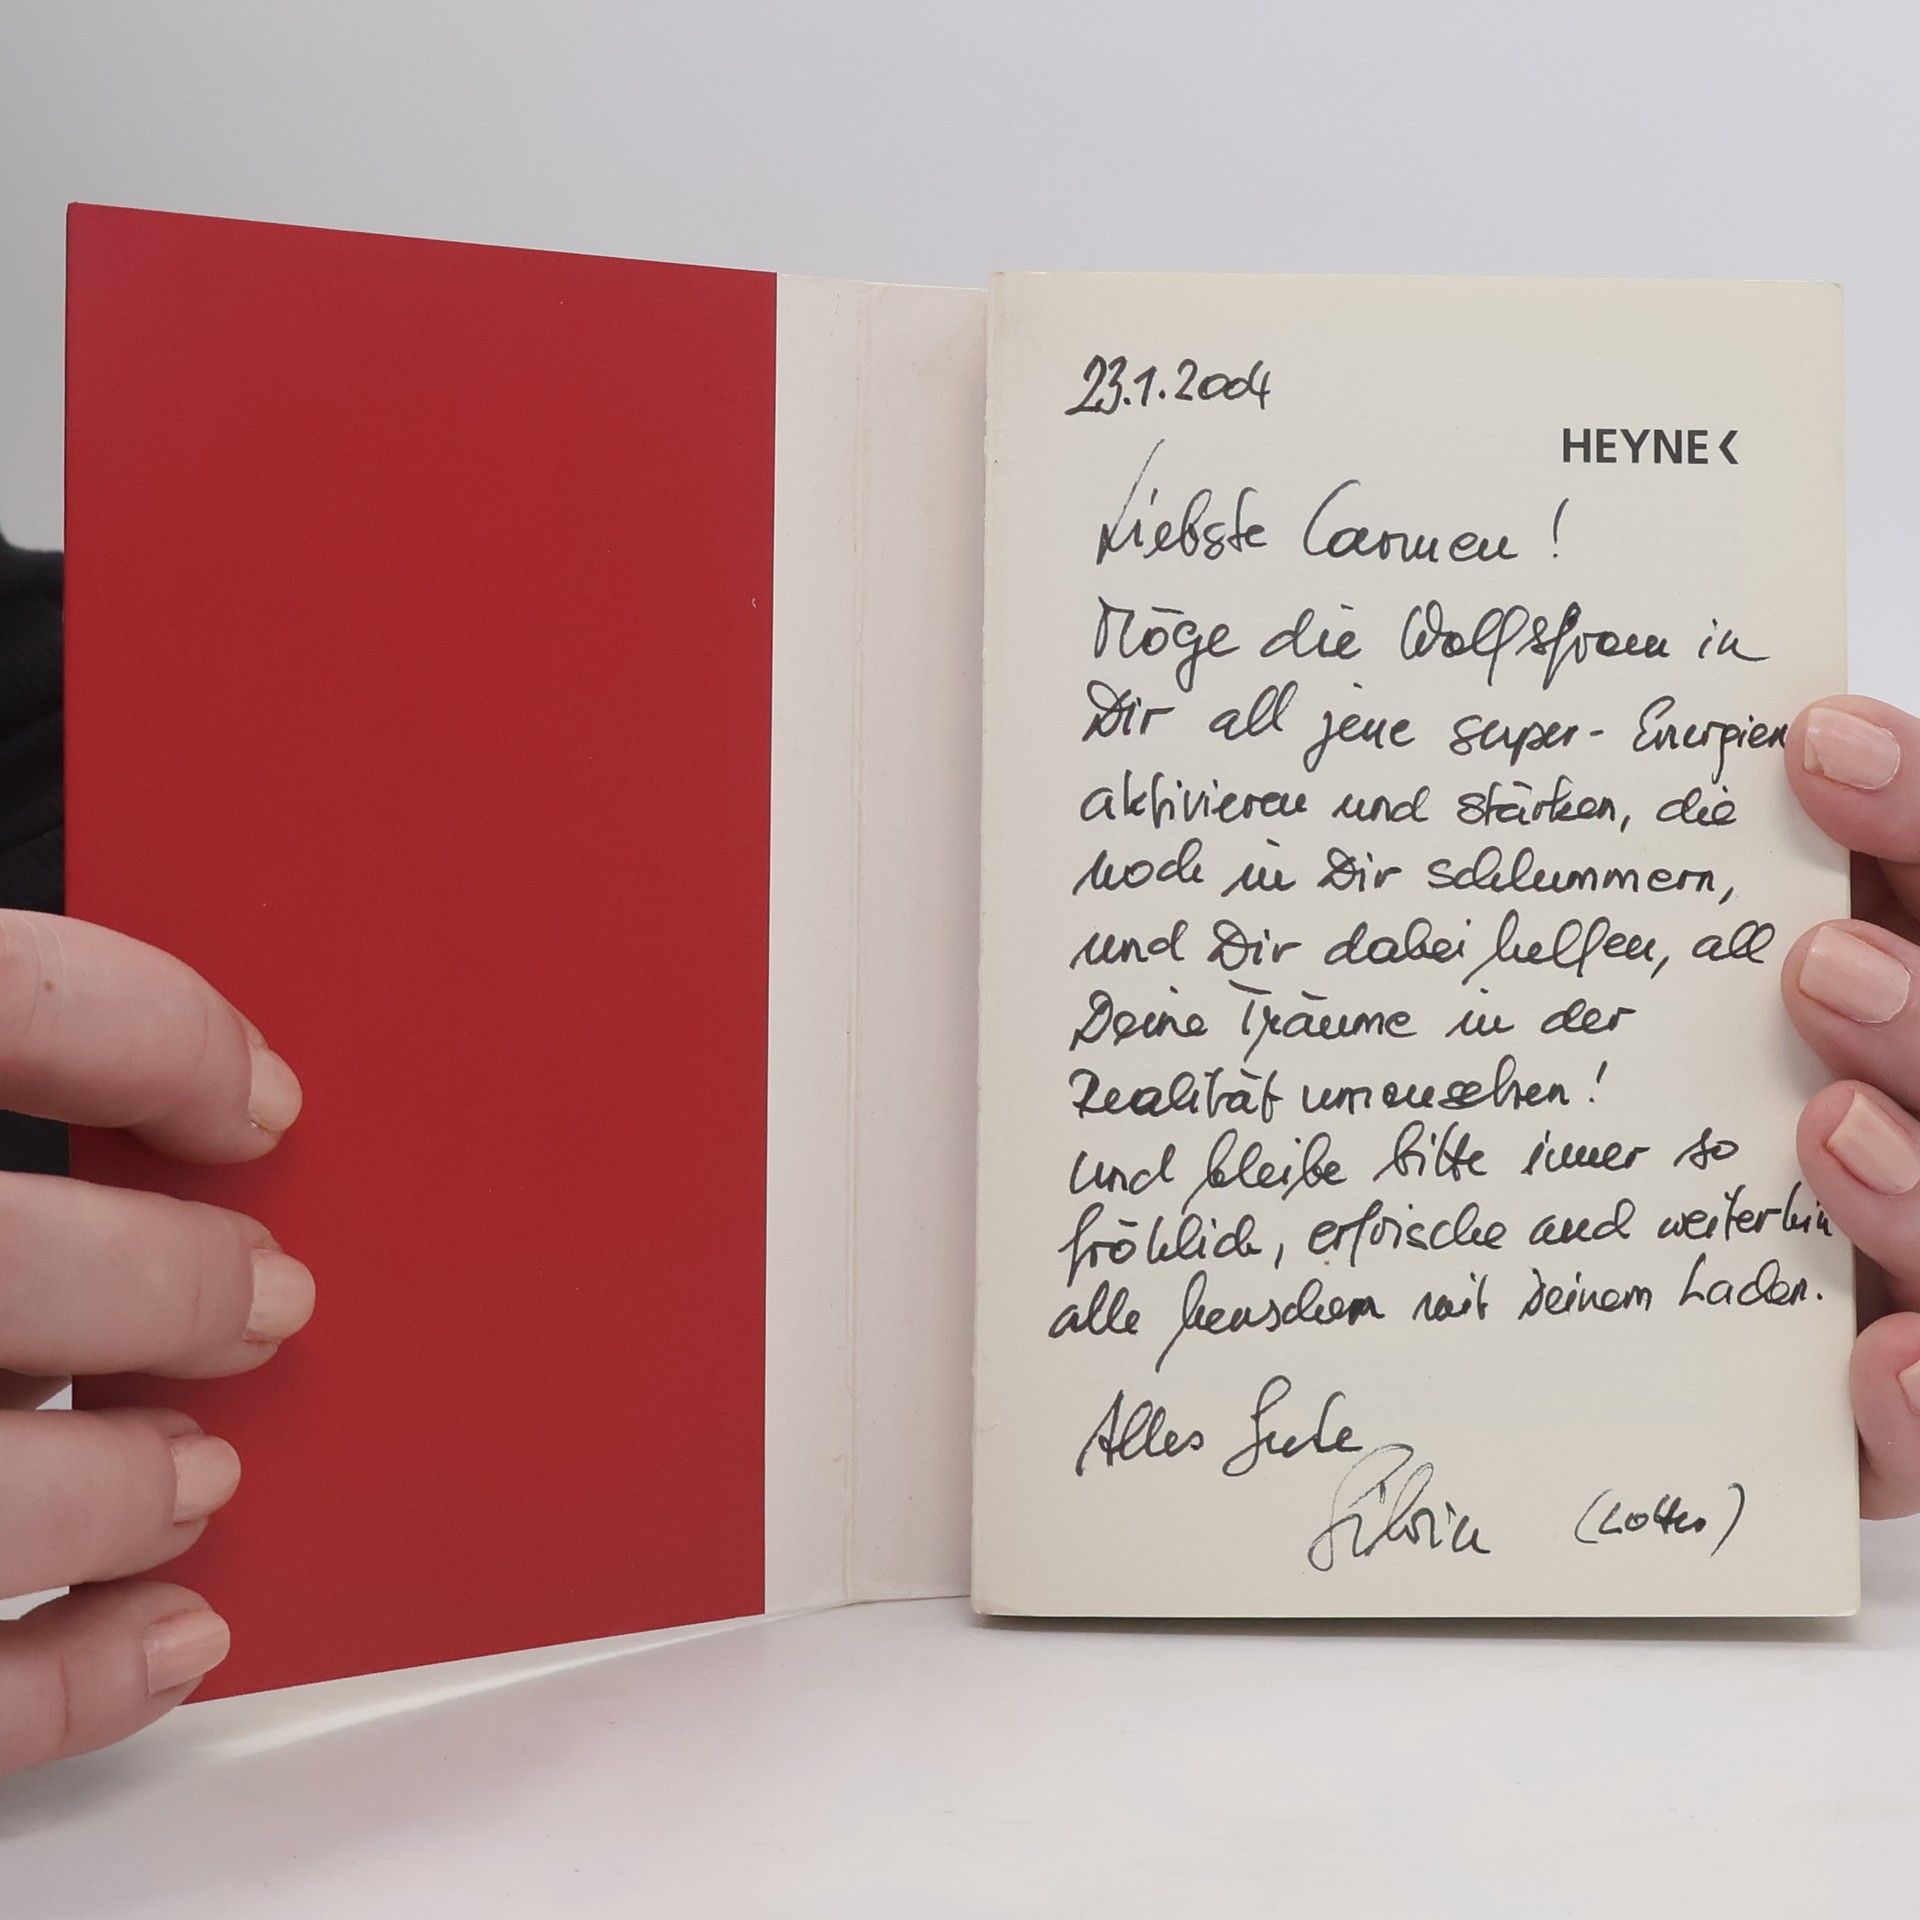 23.1.2004
HEYNE<
Liebste Carmen!
Möge die Wolfsfrau in
Dir all jene super-Energien
aktivieren und stärken, die
noch in Dir schlummern,
und Dir dabei helfen, all
Deine Träume in der
Realität umzusetzen!
Und bleibe bitte immer so
fröhlich, erfrische auch weiterhin
alle Menschen mit Deinem Lachen.
Alles Gute
Silvia